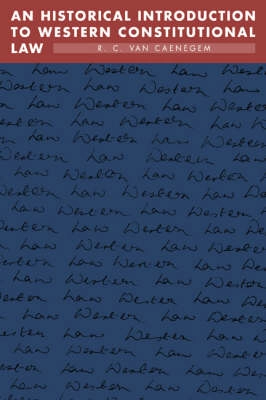 AN HISTORICAL INTRODUCTION
TO WESTERN CONSTITUTIONAL
LAW
R. C. VAN CAENEGEM
Law Western Law Western
Western Law Western Law
Law Western Law Western
Law Western Law Western
Western Law Western Law
Western Law Western Law
Law Western Law Western
Western Law Western Law
Law Western Law Western
Western Law Western Law
Law Western Law Western
Western Law Western Law
Law Western Law Western
Western Law Western Law
Law Western Law
Western Law Western Law
Law Western Law Western